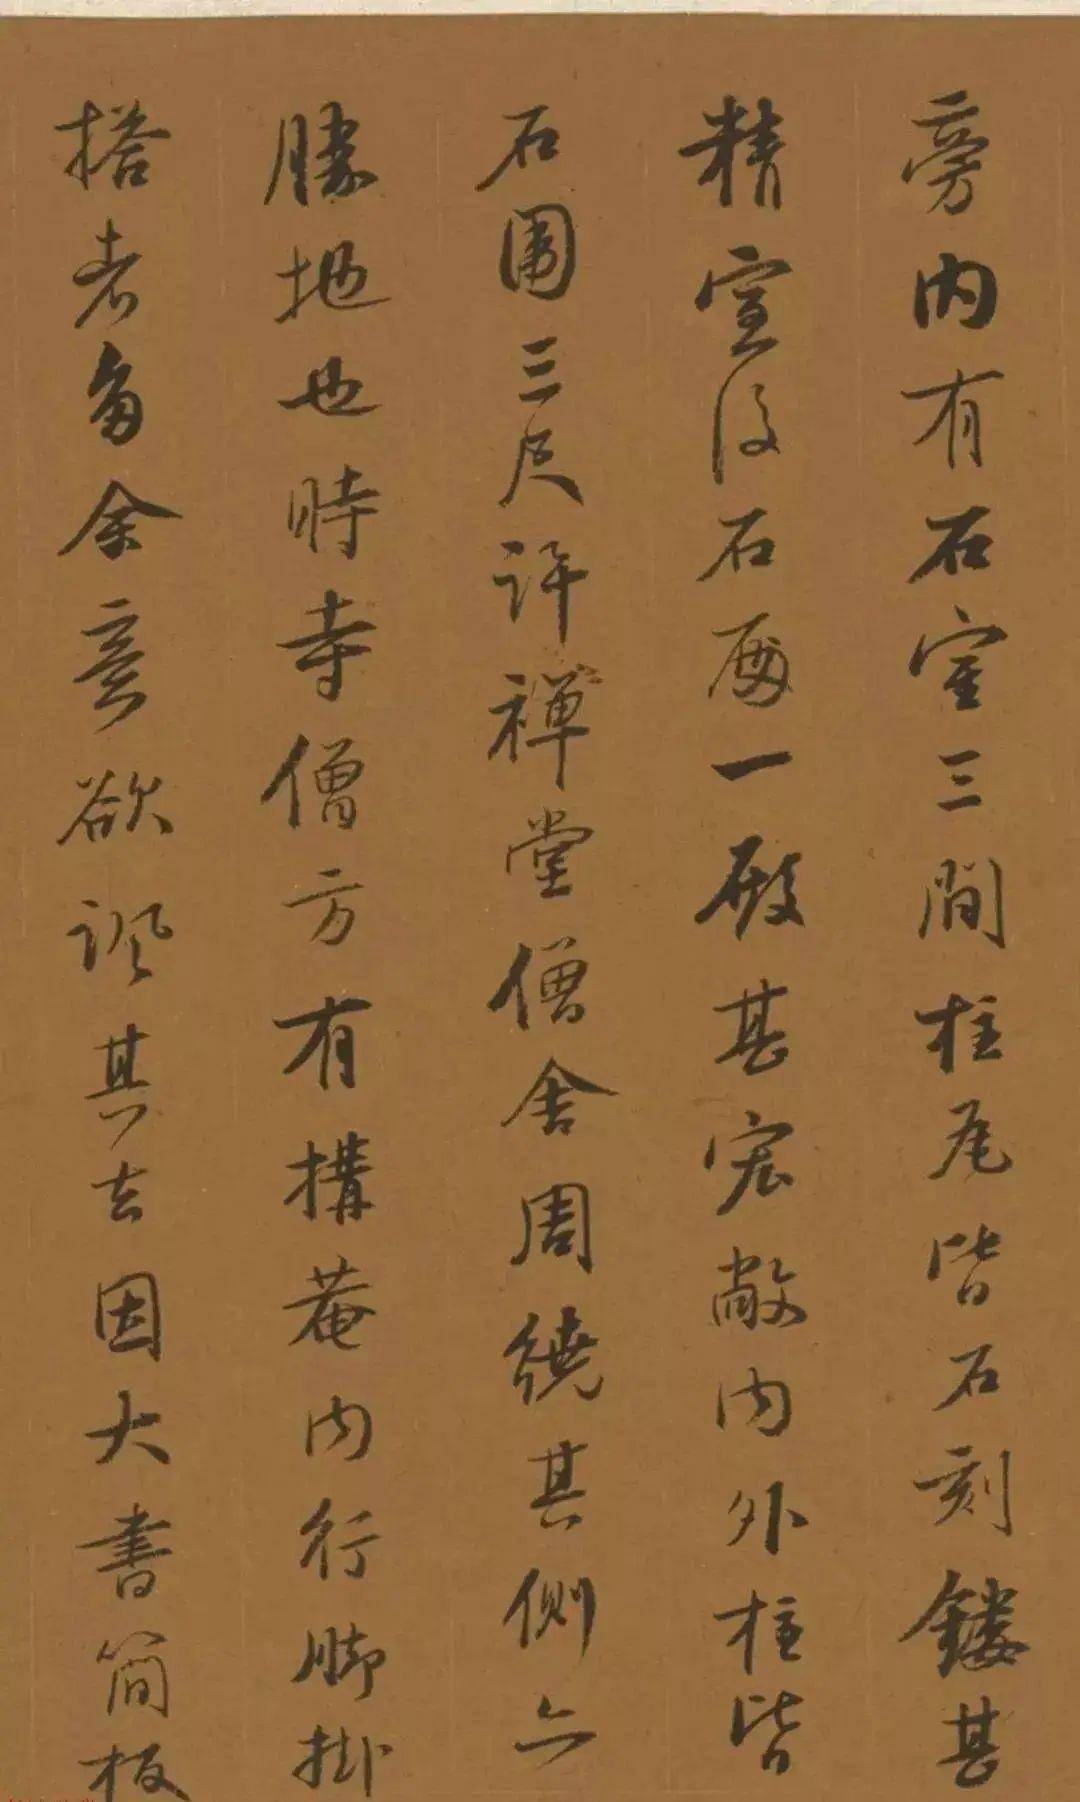 旁内有石室三間柱瓦皆石刻鏤甚
精室後石面一殿甚宏敞内外柱皆
石圍三尺許禪堂僧舍周繞其側亦
勝地也時寺僧方有搆菴内行腳掛
搭者多余意欲諷其去因大書簡板